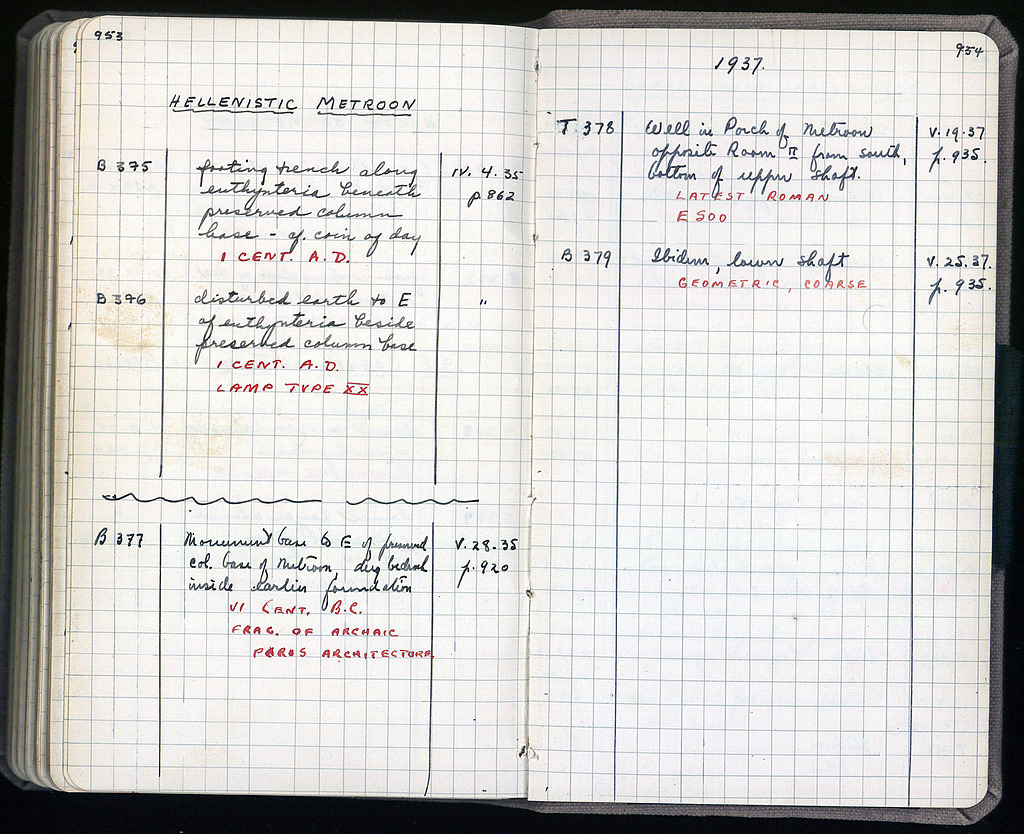 953
HELLENISTIC METROON
B 375
footing trench along
euthynteria beneath
preserved column
base - cf. coin of day
1 CENT. A.D.
IV. 4. 35
p 862
B 376
disturbed earth to E
of euthynteria beside
preserved column base
1 CENT. A.D.
LAMP TYPE XX
"
B 377
Monument base to E of preserved
col. base of Metroon, dug bedrock
inside earlier foundation
VI CENT. B.C.
FRAG. OF ARCHAIC
POROS ARCHITECTURE.
V. 28. 35
p. 920
954
1937.
T 378
Well in Porch of Metroon
opposite Room II from south,
bottom of upper shaft.
LATEST ROMAN
E 500
V. 19. 37
p. 935.
B 379
Ibidem, lower shaft
GEOMETRIC, COARSE
V. 25. 37.
p. 935.